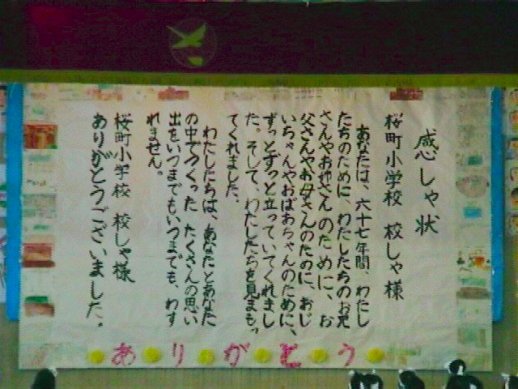 感しゃ状
桜町小学校 校しゃ様
あなたは、六十七年間、わたし
たちのために、わたしたちのお兄
さんやお姉さんのために、お
父さんやお母さんのために、おじ
いちゃんやおばあちゃんのために、
ずっとずっと立っていてくれまし
た。そして、わたしたちを見まもっ
てくれました。
わたしたちは、あなたとあなた
の中でつくった たくさんの思い
出をいつまでもいつまでも、わす
れません。
桜町小学校 校しゃ様
ありがとうございました。
ありがとう